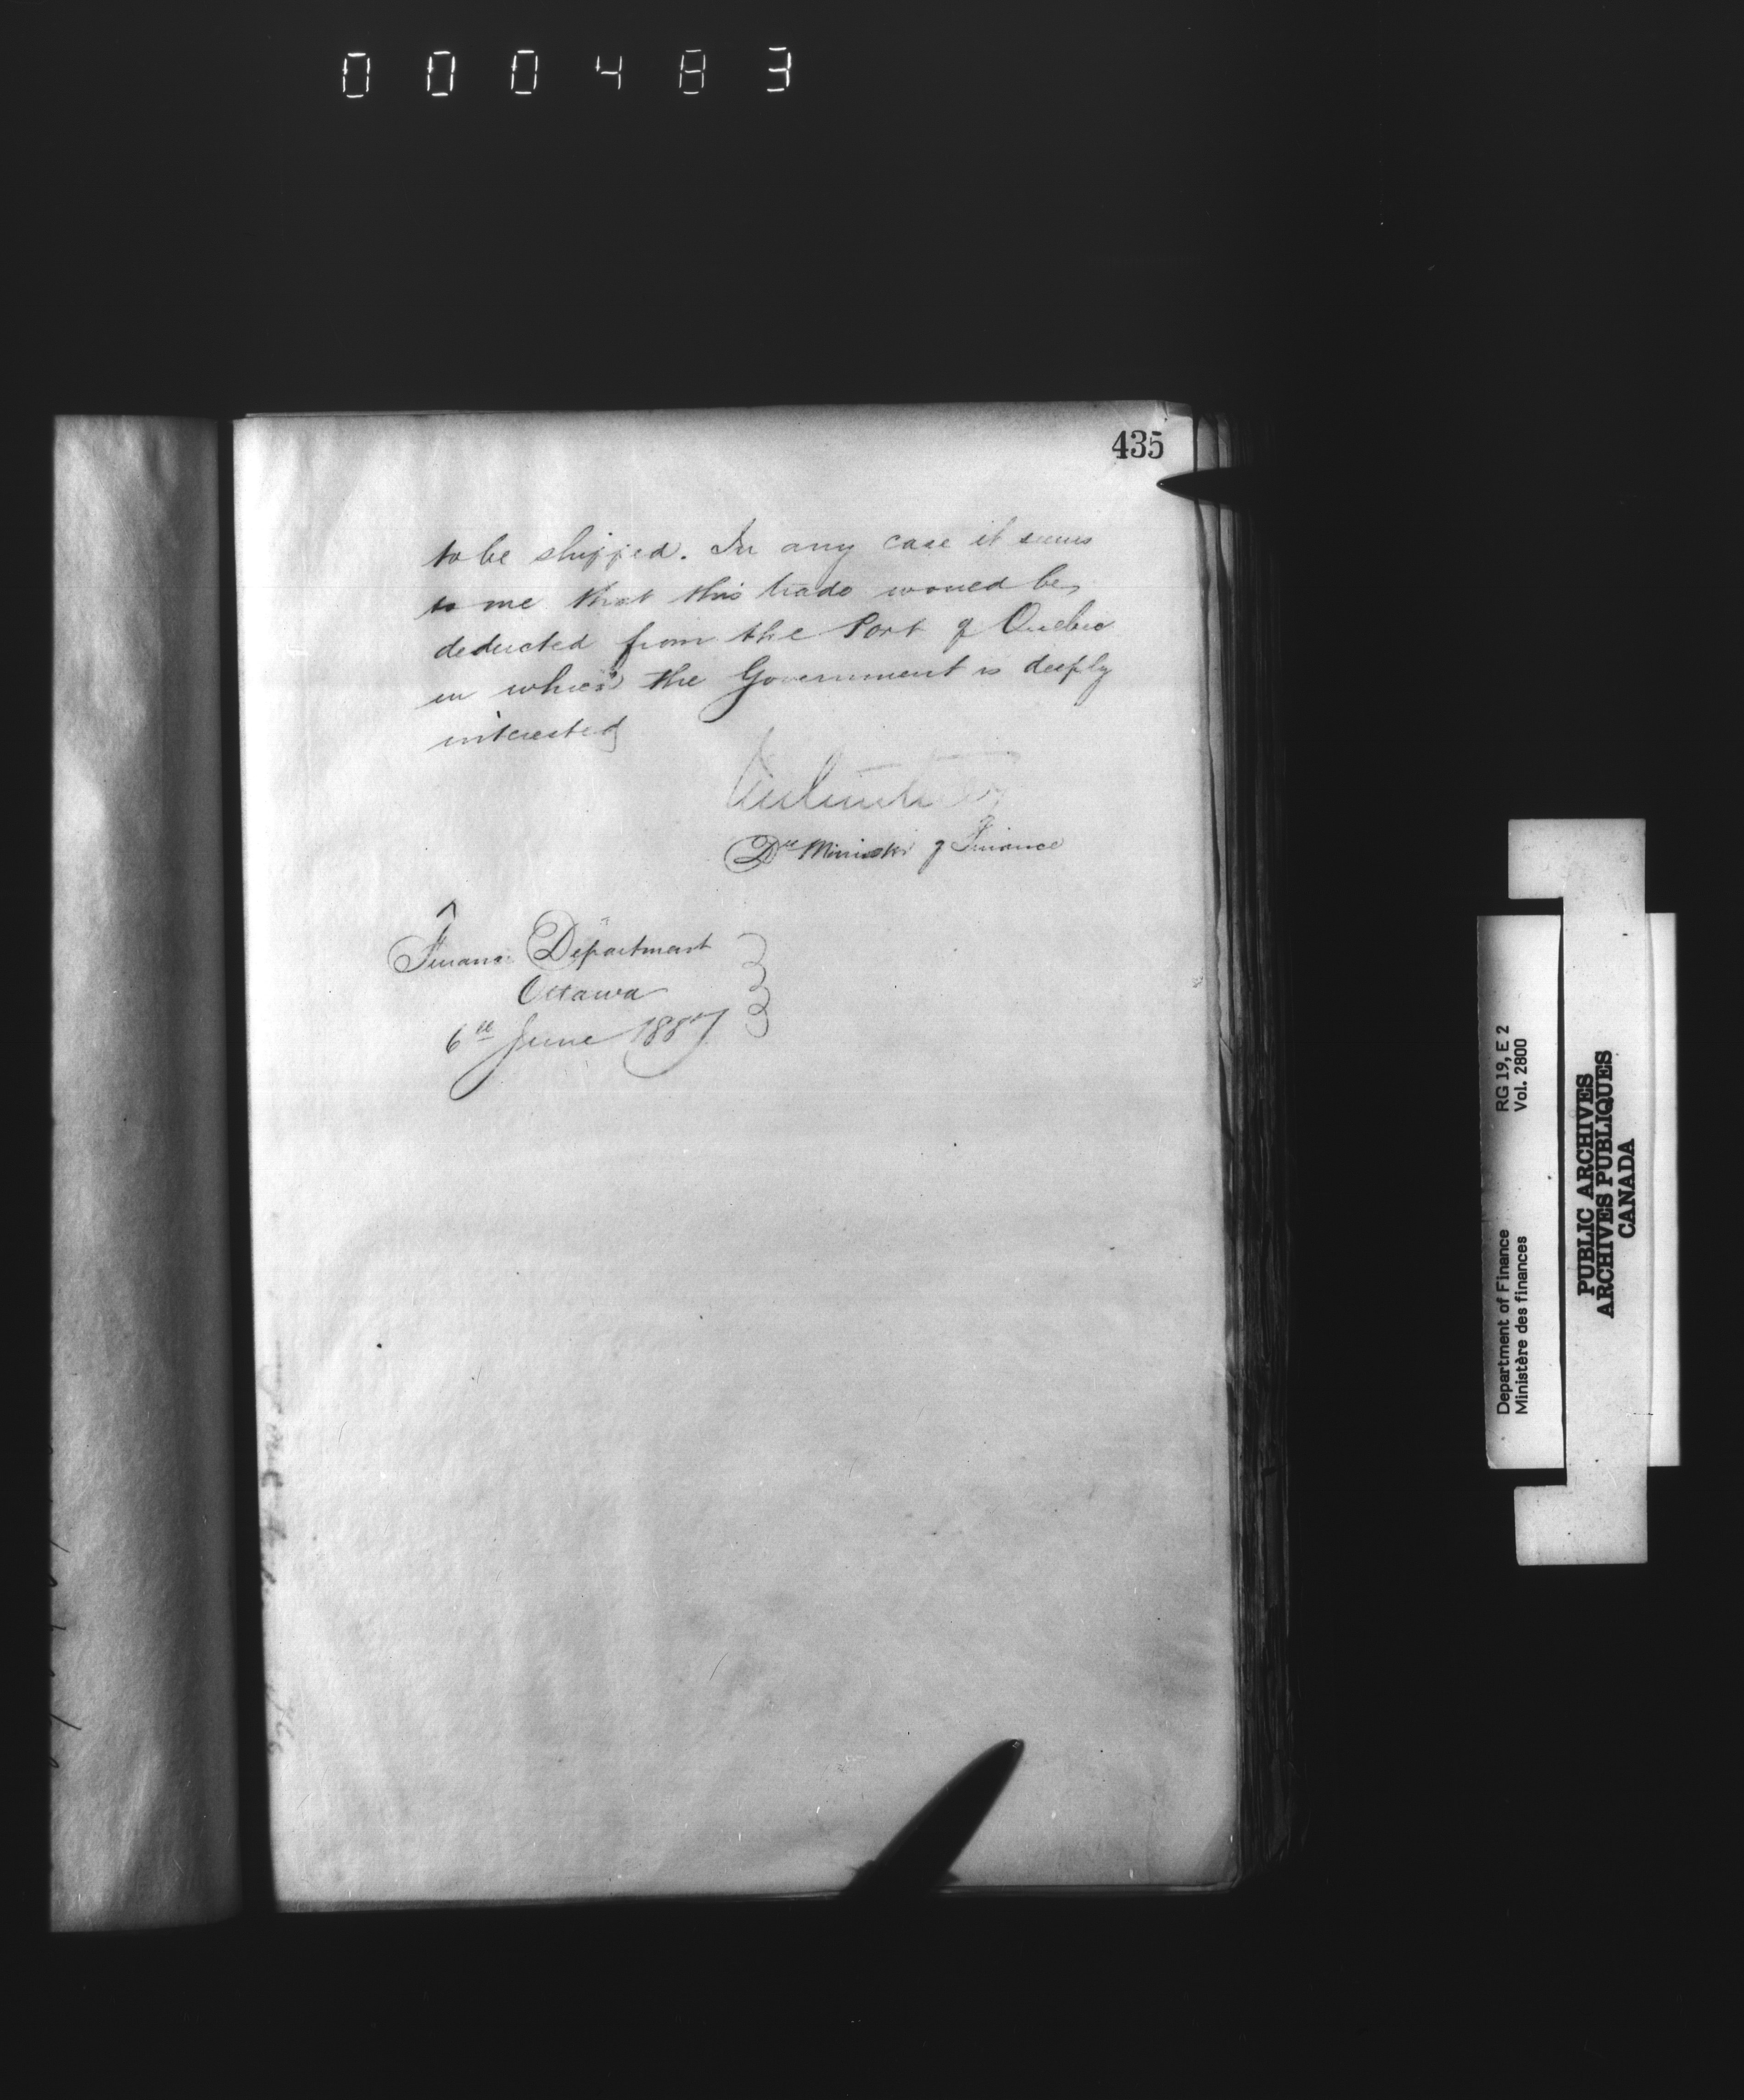 000483
435
to be shipped. In any case it seems
to me that this trade would be
deducted from the Port of Quebec
in which the Government is deeply
interested
Minister of Finance
Finance Department
Ottawa
6th June 1887
RG 19, E 2
Vol. 2800
Department of Finance
Ministère des finances
PUBLIC ARCHIVES
ARCHIVES PUBLIQUES
CANADA